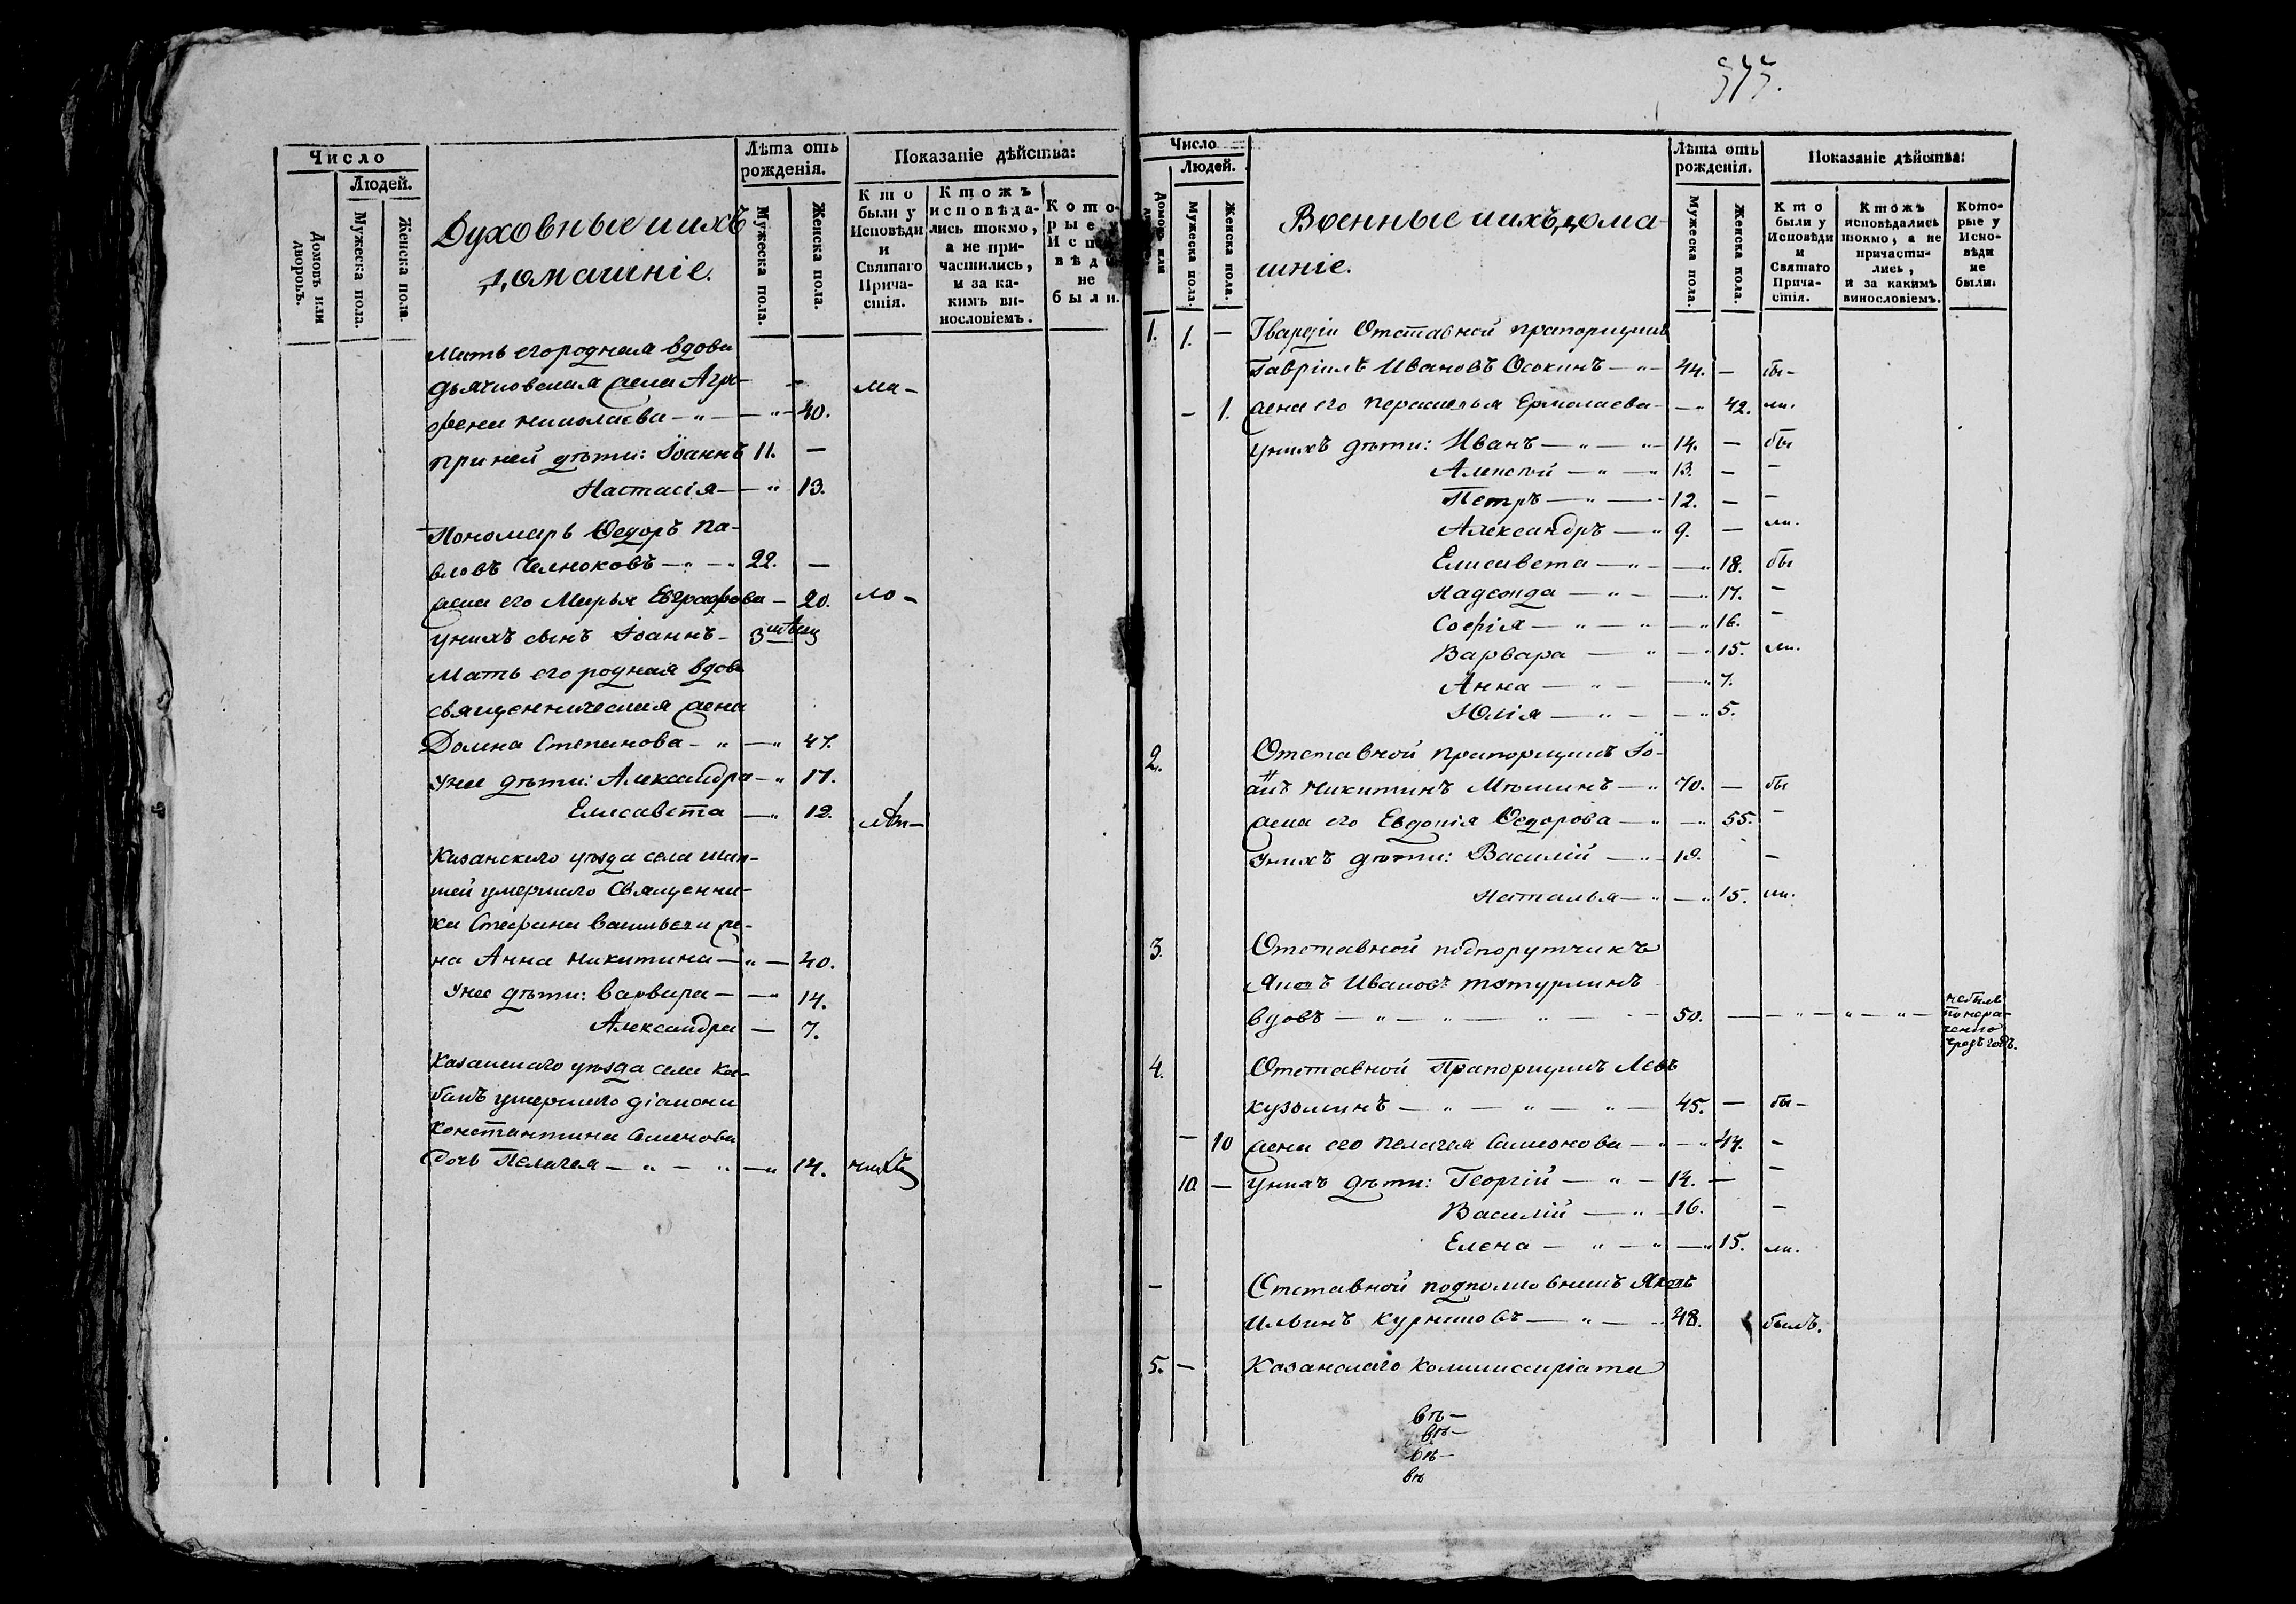 Число
Людей.
Домовъ или дворовъ.
Мужеска пола.
Женска пола.
Духовные и ихъ
домашніе.
Лѣта отъ рожденія.
Мужеска пола.
Женска пола.
Показаніе дѣйства:
Кто были у Исповѣди и Святаго Причастія.
Ктожъ исповѣдались токмо, а не причастились, и за какимъ винословіемъ.
Которые у Исповѣди не были.
Мать его родная вдова
дьячковская жена Агри-
фена Николаева — 40.
при ней дѣти: Іоаннъ 11. —
Настасія — 13.
Пономарь Ѳедоръ Па-
вловъ Челноковъ — 22. —
жена его Марья Евграфова — 20.
у нихъ сынъ Іоаннъ — 3
Мать его родная вдова
священническая жена
Домна Степанова — 47.
у нее дѣти: Александра — 17.
Елисавета — 12.
Казанскаго уѣзда села
умершаго Священни-
ка Стефана Васильева же-
на Анна Никитина — 40.
У нее дѣти: Варвара — 14.
Александра — 7.
Казанскаго уѣзда села Ка-
банъ умершаго діакона
Константина Семенова
дочь Пелагея — 14.
Число
Людей.
Домовъ или
Мужеска пола.
Женска пола.
Военные и ихъ дома-
шніе.
Лѣта отъ рожденія.
Мужеска пола.
Женска пола.
Показаніе дѣйства:
Кто были у Исповѣди и Святаго Причастія.
Ктожъ исповѣдались токмо, а не причастились, и за какимъ винословіемъ.
Которые у Исповѣди не были.
1. 1. — Гвардіи Отставной прапорщикъ
Гавріилъ Ивановъ Осокинъ — 44. — бы-
— 1. жена его Ермолаева — 42. ли.
у нихъ дѣти: Иванъ — 14. — бы
Алексѣй — 13. — —
Петръ — 12. — —
Александръ — 9. — ли.
Елисавета — 18. бы
Надежда — 17. —
Софія — 16. —
Варвара — 15. ли.
Анна — 7.
Юлія — 5.
2. Отставной прапорщикъ Іо-
аннъ Никитинъ — 70. — бы
жена его Евдокія Ѳедорова — 55. —
у нихъ дѣти: Василій — 19. —
Наталья — 15. ли.
3. Отставной подпорутчикъ
Яковъ Ивановъ
вдовъ — 50. — не былъ
4. Отставной Прапорщикъ Левъ
Кузьминъ — 45. — бы-
— 10 жена его Пелагея Симеонова — 44. —
10. — у нихъ дѣти: Георгій — 14. — —
Василій — 16. —
Елена — 15. ли.
— Отставной подполковникъ Яковъ
Ильинъ — 48. былъ.
5. — Казанскаго Коммиссаріата
въ —
въ —
въ —
въ